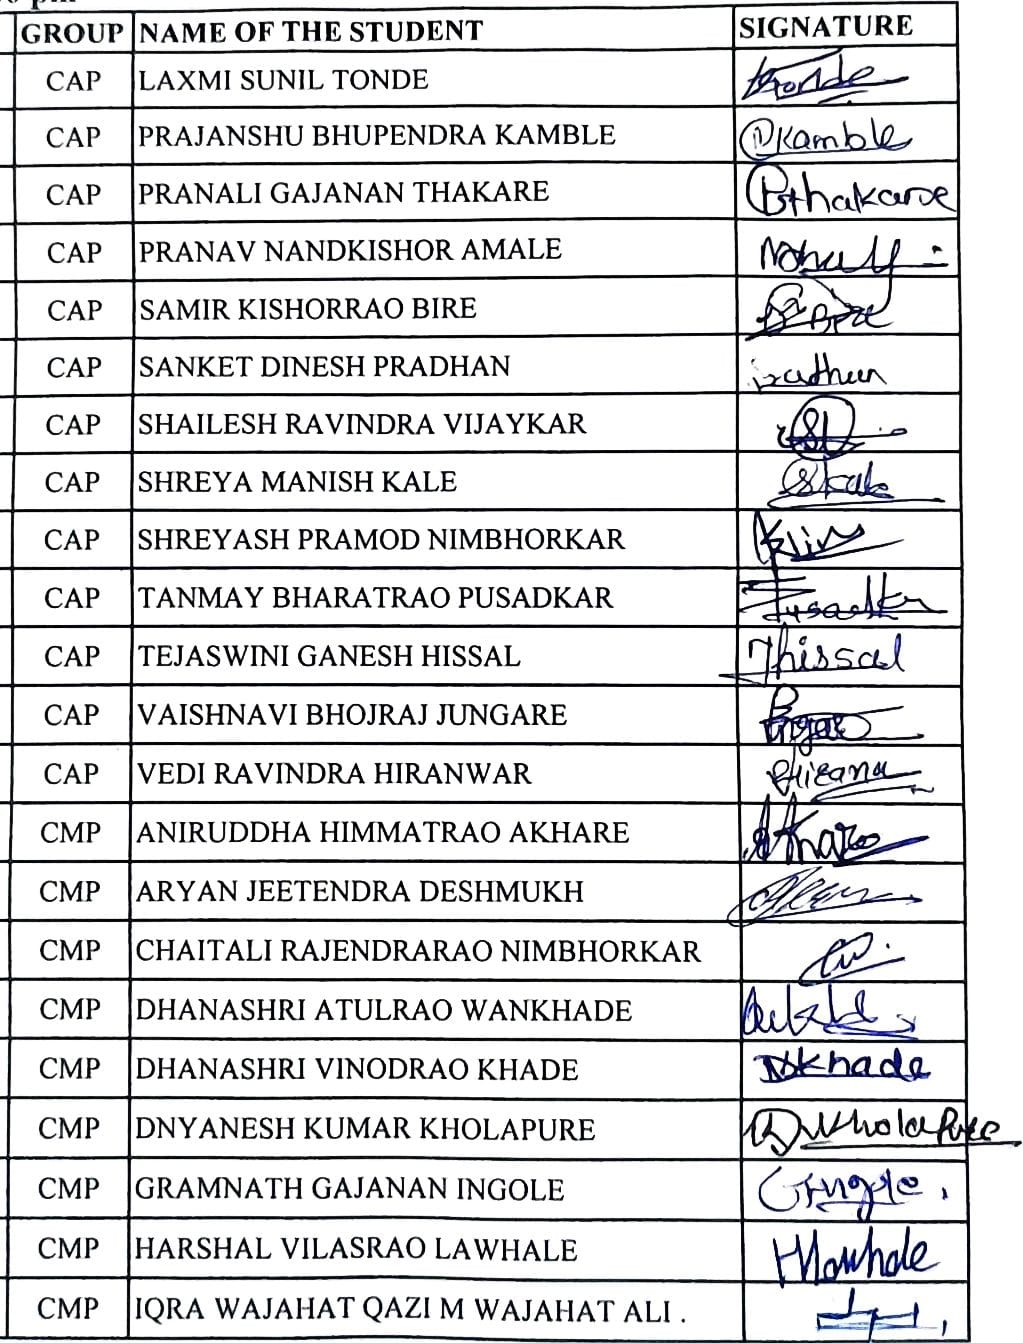 GROUP NAME OF THE STUDENT SIGNATURE
CAP LAXMI SUNIL TONDE
CAP PRAJANSHU BHUPENDRA KAMBLE Kamble
CAP PRANALI GAJANAN THAKARE Thakare
CAP PRANAV NANDKISHOR AMALE
CAP SAMIR KISHORRAO BIRE
CAP SANKET DINESH PRADHAN
CAP SHAILESH RAVINDRA VIJAYKAR
CAP SHREYA MANISH KALE Skale
CAP SHREYASH PRAMOD NIMBHORKAR
CAP TANMAY BHARATRAO PUSADKAR
CAP TEJASWINI GANESH HISSAL Thissal
CAP VAISHNAVI BHOJRAJ JUNGARE
CAP VEDI RAVINDRA HIRANWAR
CMP ANIRUDDHA HIMMATRAO AKHARE
CMP ARYAN JEETENDRA DESHMUKH
CMP CHAITALI RAJENDRARAO NIMBHORKAR
CMP DHANASHRI ATULRAO WANKHADE
CMP DHANASHRI VINODRAO KHADE Khade
CMP DNYANESH KUMAR KHOLAPURE Kholapure
CMP GRAMNATH GAJANAN INGOLE
CMP HARSHAL VILASRAO LAWHALE HLawhale
CMP IQRA WAJAHAT QAZI M WAJAHAT ALI .